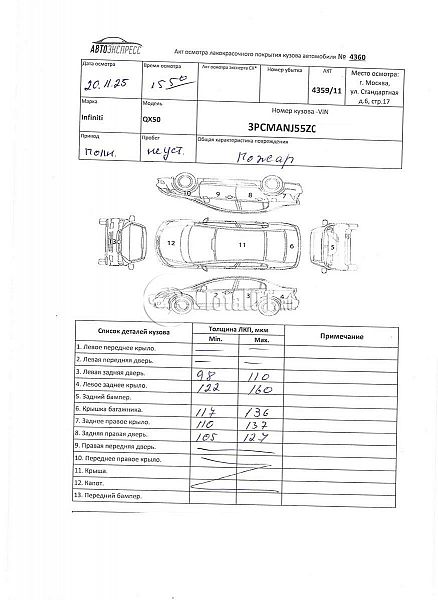 АВТОЭКСПРЕСС
Акт осмотра лакокрасочного покрытия кузова автомобиля № 4360
Дата осмотра Время осмотра Акт осмотра эксперта СК* Номер убытка АКТ Место осмотра:
20.11.25 15 50 4359/11 г. Москва,
ул. Стандартная
д.6, стр.17
Марка Модель Номер кузова -VIN
Infiniti QX50 3PCMANJ55ZC
Привод Пробег Общая характеристика повреждения
Полн. неуст. Пожар
10 9 8 7
3 12 11 6 5
1 2 3 4
Список деталей кузова Толщина ЛКП, мкм Примечание
Min. Max.
1. Левое переднее крыло. — —
2. Левая передняя дверь. — —
3. Левая задняя дверь. 98 110
4. Левое заднее крыло. 122 160
5. Задний бампер.
6. Крышка багажника. 117 136
7. Заднее правое крыло. 110 137
8. Задняя правая дверь. 105 127
9. Правая передняя дверь.
10. Переднее правое крыло.
11. Крыша.
12. Капот.
13. Передний бампер.